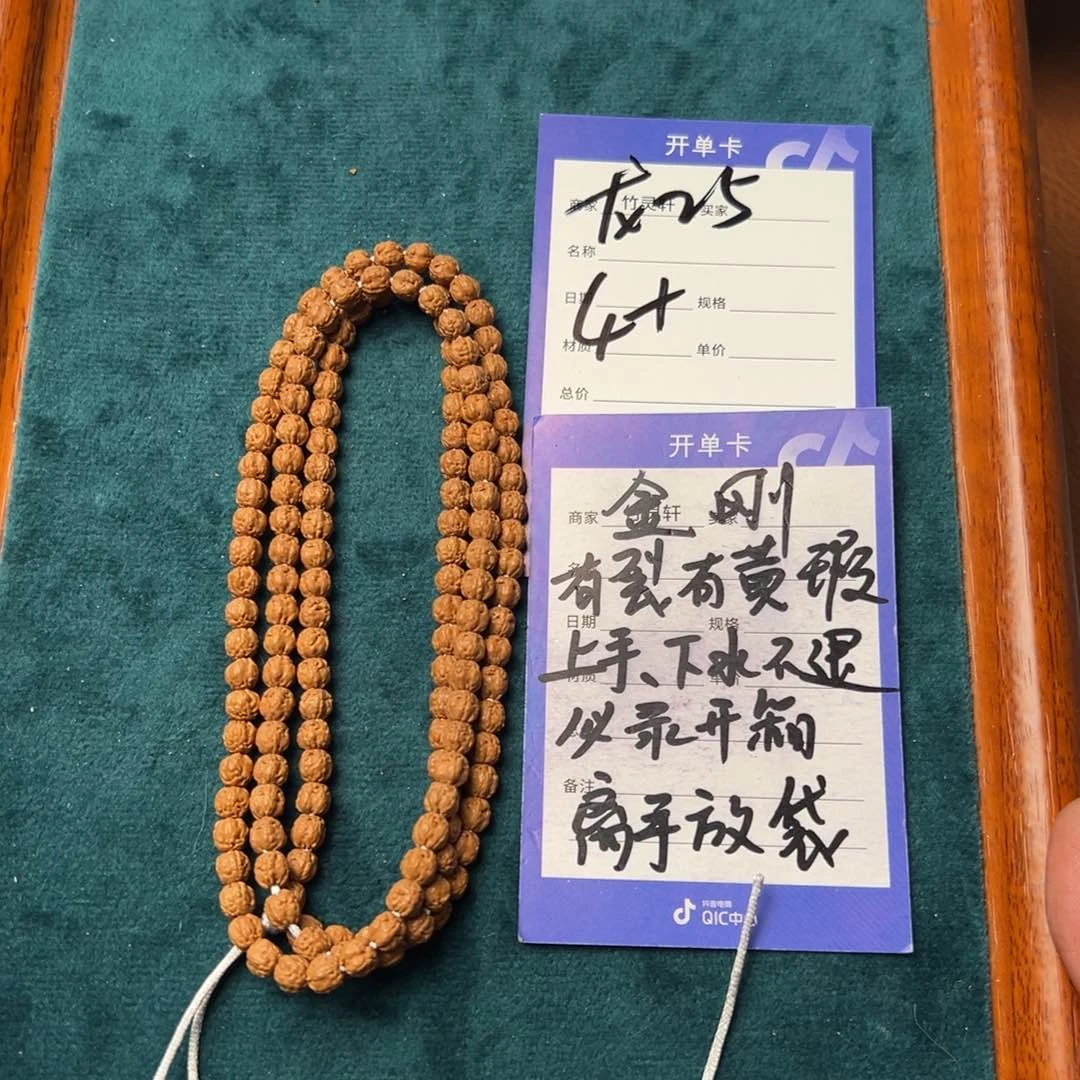 开单卡
龙25
商家 竹灵轩 买家
名称
4+
日期 规格
材质 单价
总价
开单卡
金刚
商家 轩 买家
有裂有黄瑕
日期 规格
上手、下水不退
材质 单价
必录开箱
备注
离手放袋
抖音电商
QIC中心